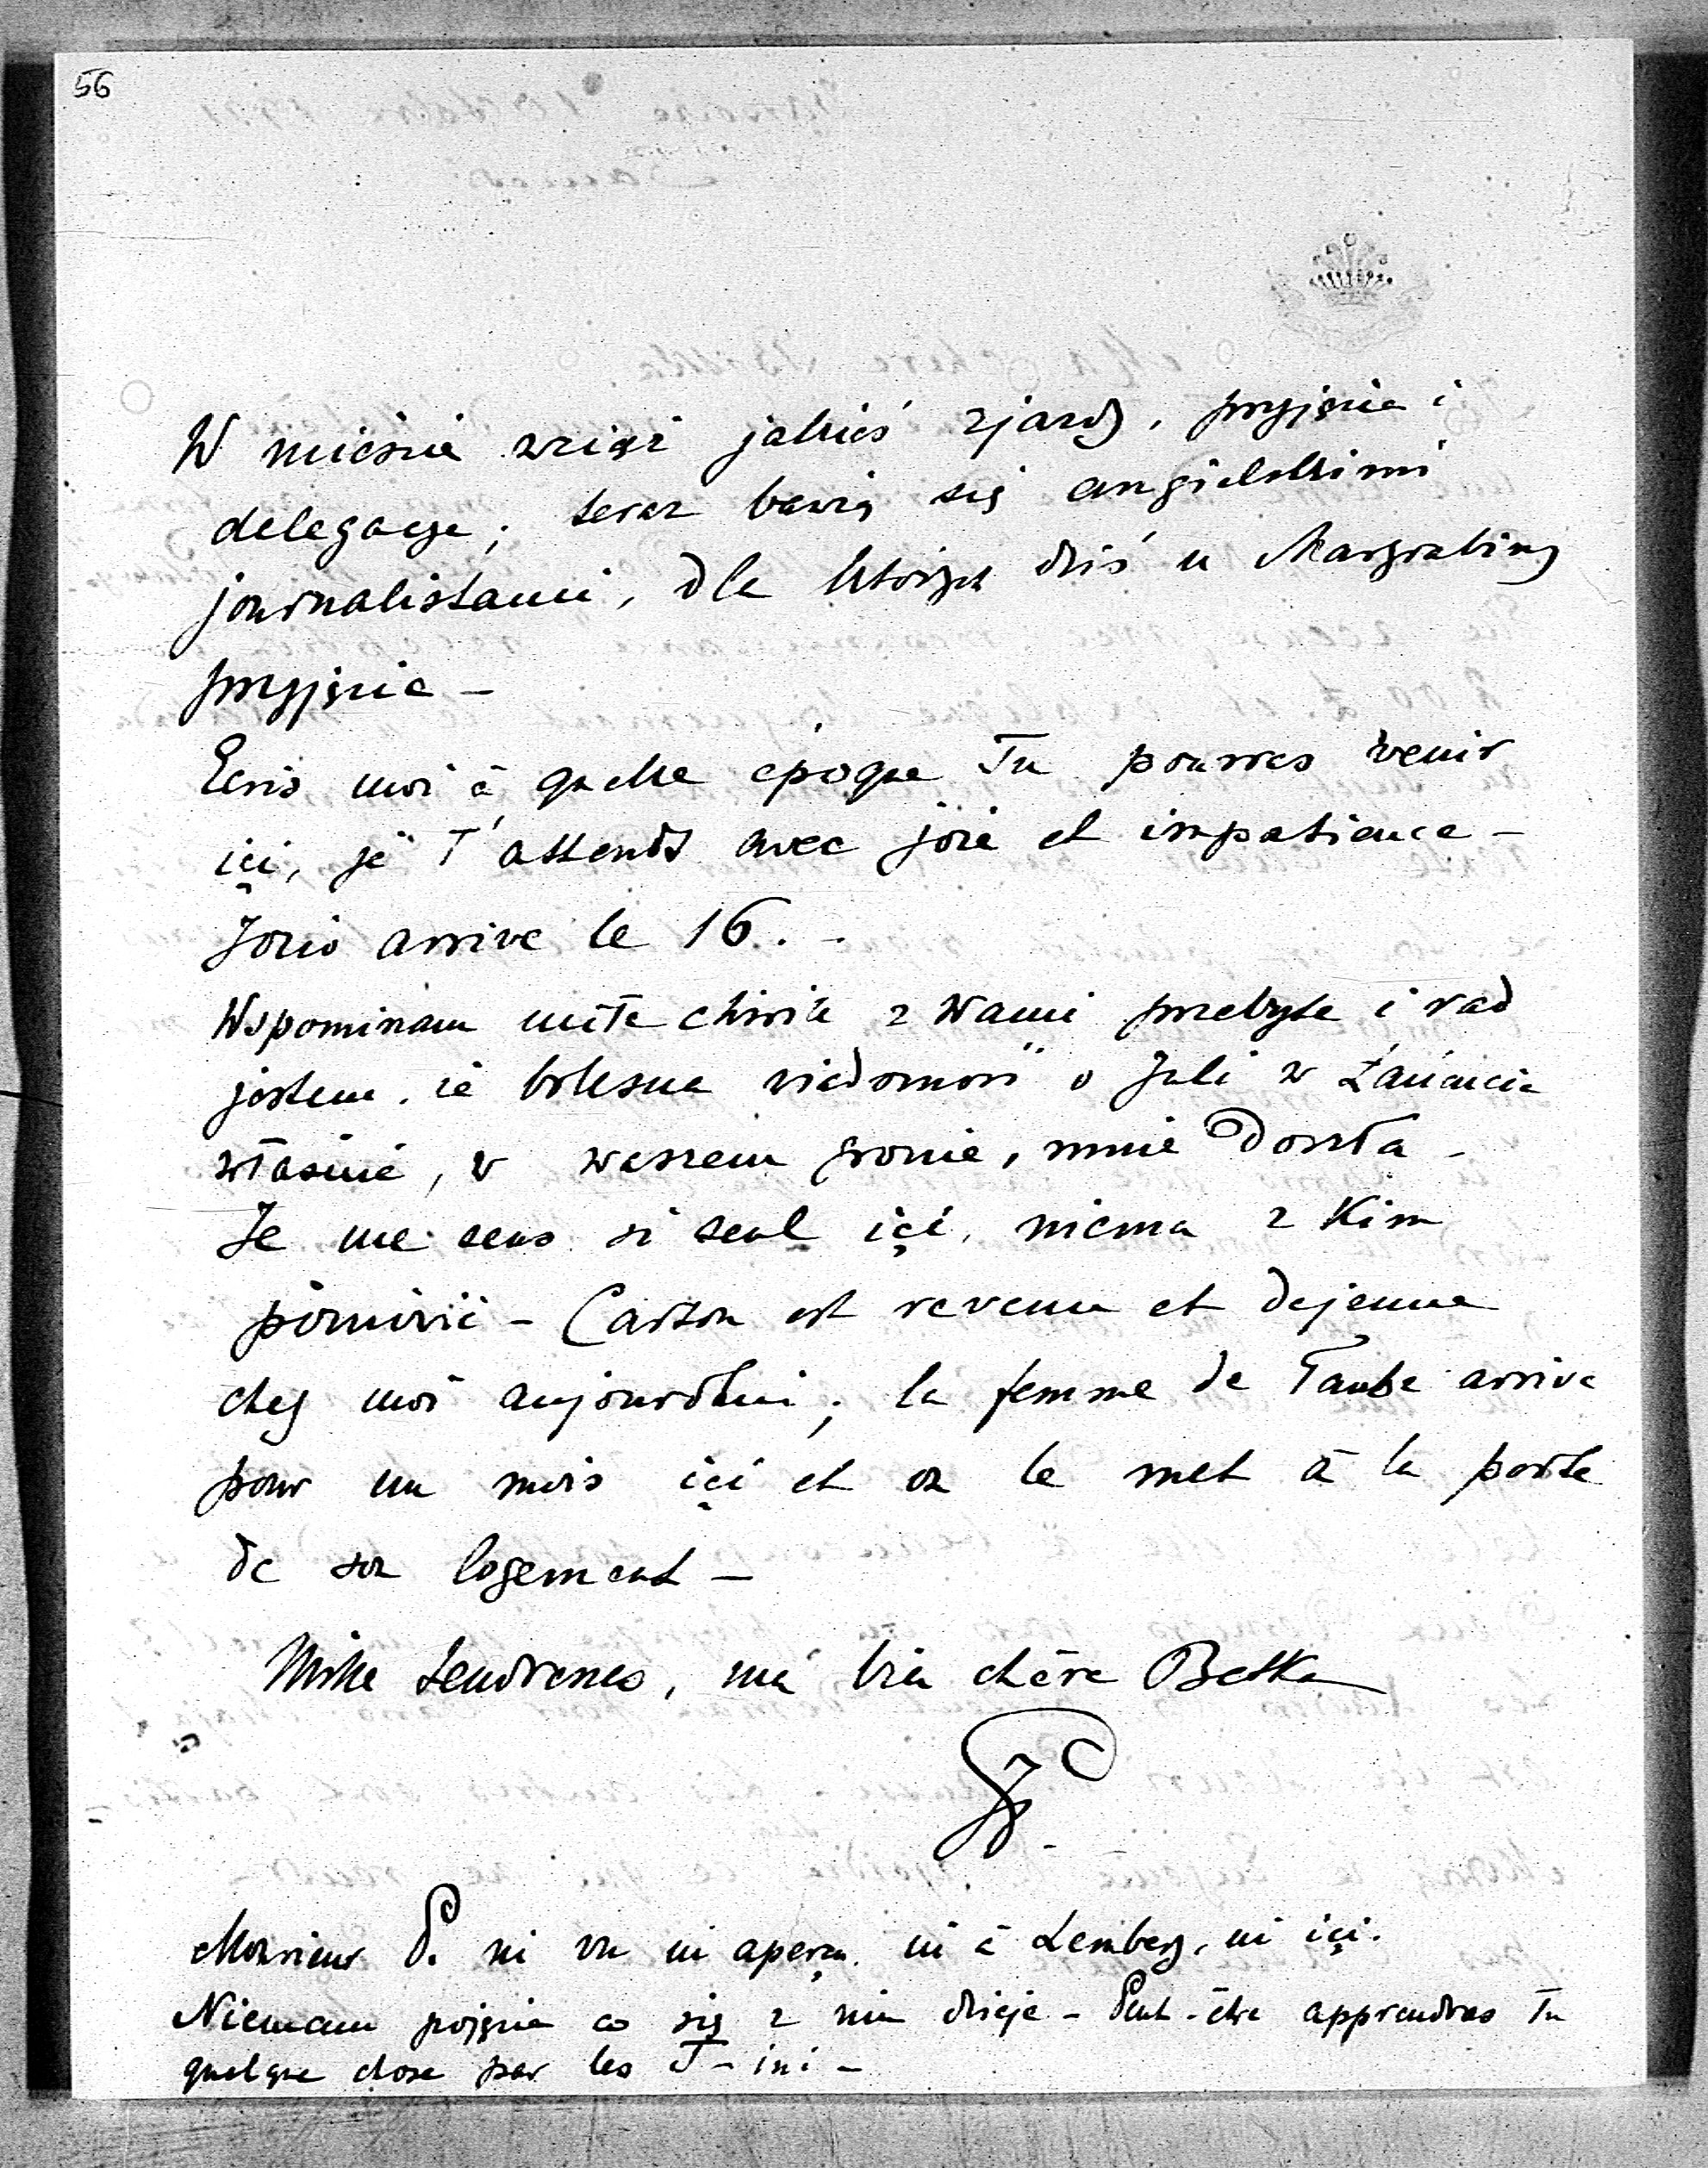 56
W mieście wciąż jakieś zjazdy, przyjęcia i
delegacye; teraz bawią się angielskimi
journalistami, dla których dziś u Margrabiny
przyjęcie –
Ecris moi à quelle époque Tu pourras venir
içi, je T'attends avec joie et impatience –
Jozio arrive le 16. –
Wspominam miłe chwile z Wami przebyte i rad
jestem, że bolesna wiadomość o Juli w Łańcucie
właśnie, w waszem gronie, mnie doszła –
Je me sens si seul içi, niema z kim
pomówić – Carton est revenu et dejeune
chez moi aujourdhui; la femme de Taube arrive
pour un mois içi et on le met à la porte
de son logement –
Mille tendresses, ma bien chère Betka
Monsieur P. ni vu ni aperçu, ni à Lemberg, ni içi.
Niemam pojęcia co się z nim dzieje – Peut-être apprendras Tu
quelque chose par les T–ini –